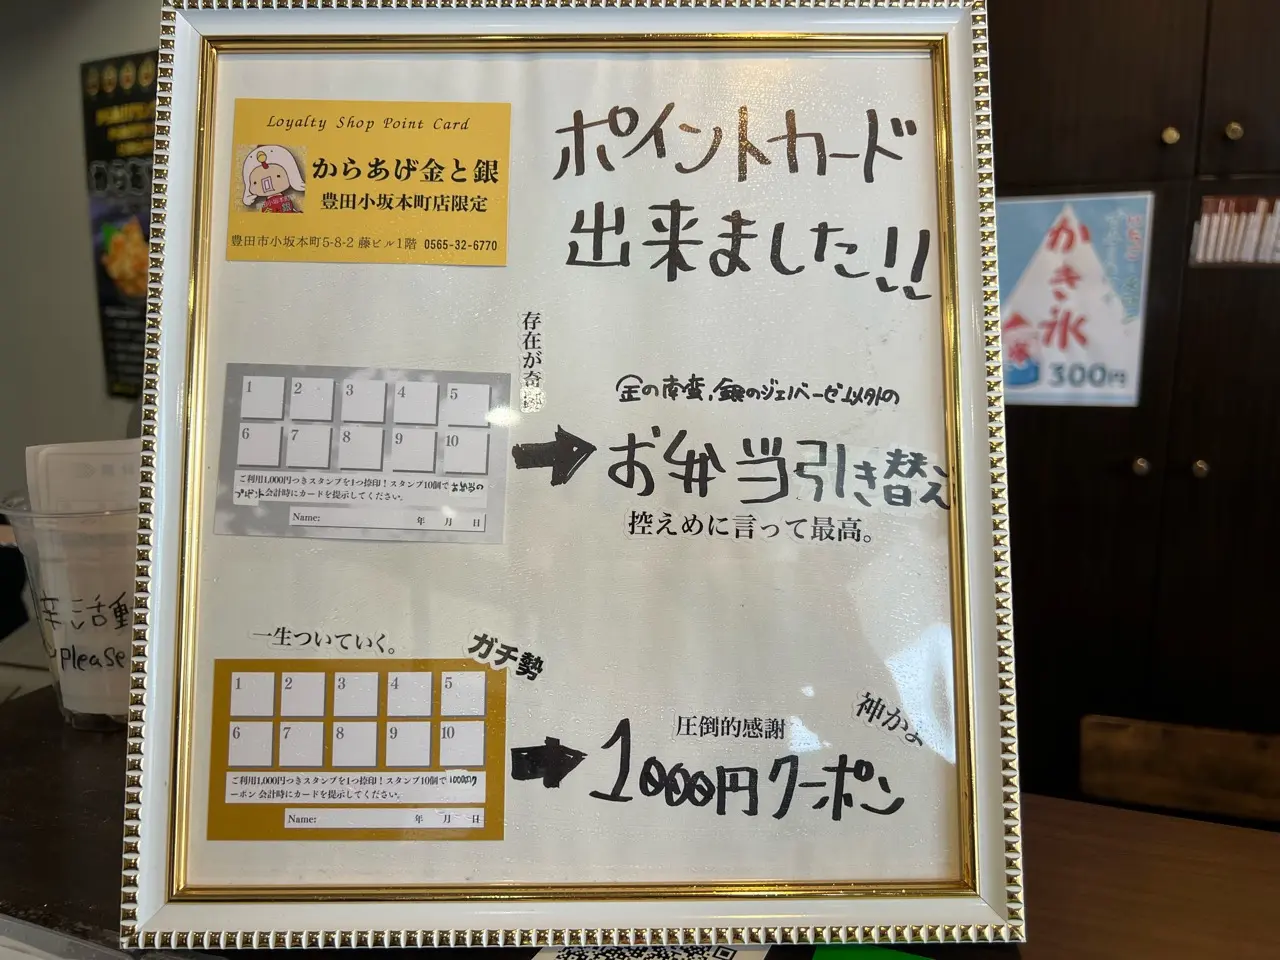 Loyalty Shop Point Card
からあげ金と銀
豊田小坂本町店限定
豊田市小坂本町5-8-2 藤ビル1階 0565-32-6770
ポイントカード
出来ました!!
存在が奇
1 2 3 4 5
6 7 8 9 10
ご利用1,000円つきスタンプを1つ捺印!スタンプ10個で お弁当の
プレゼント 会計時にカードを提示してください。
Name: 年 月 日
金の南蛮、銀のジェノベーゼ以外の
お弁当引き替え
控えめに言って最高。
一生ついていく。
ガチ勢
1 2 3 4 5
6 7 8 9 10
ご利用1,000円つきスタンプを1つ捺印!スタンプ10個で 1000円ク
ーポン 会計時にカードを提示してください。
Name: 年 月 日
圧倒的感謝
神かよ
1000円クーポン
かき氷
300円
please